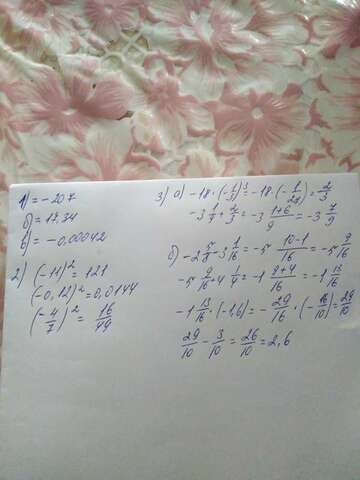 1) = -207
б) = 17,34
в) = -0,00042
2) (-11)² = 121
(-0,12)² = 0,0144
(-4/7)² = 16/49
3) а) -18 · (-1/3)³ = -18 · (-1/27) = 2/3
-3 1/9 + 2/3 = -3 1+6/9 = -3 7/9
б) -2 5/8 - 3 1/16 = -5 10-1/16 = -5 9/16
-5 9/16 + 4 1/4 = -1 9+4/16 = -1 13/16
-1 13/16 · (-1,6) = -29/16 · (-16/10) = 29/10
29/10 - 3/10 = 26/10 = 2,6